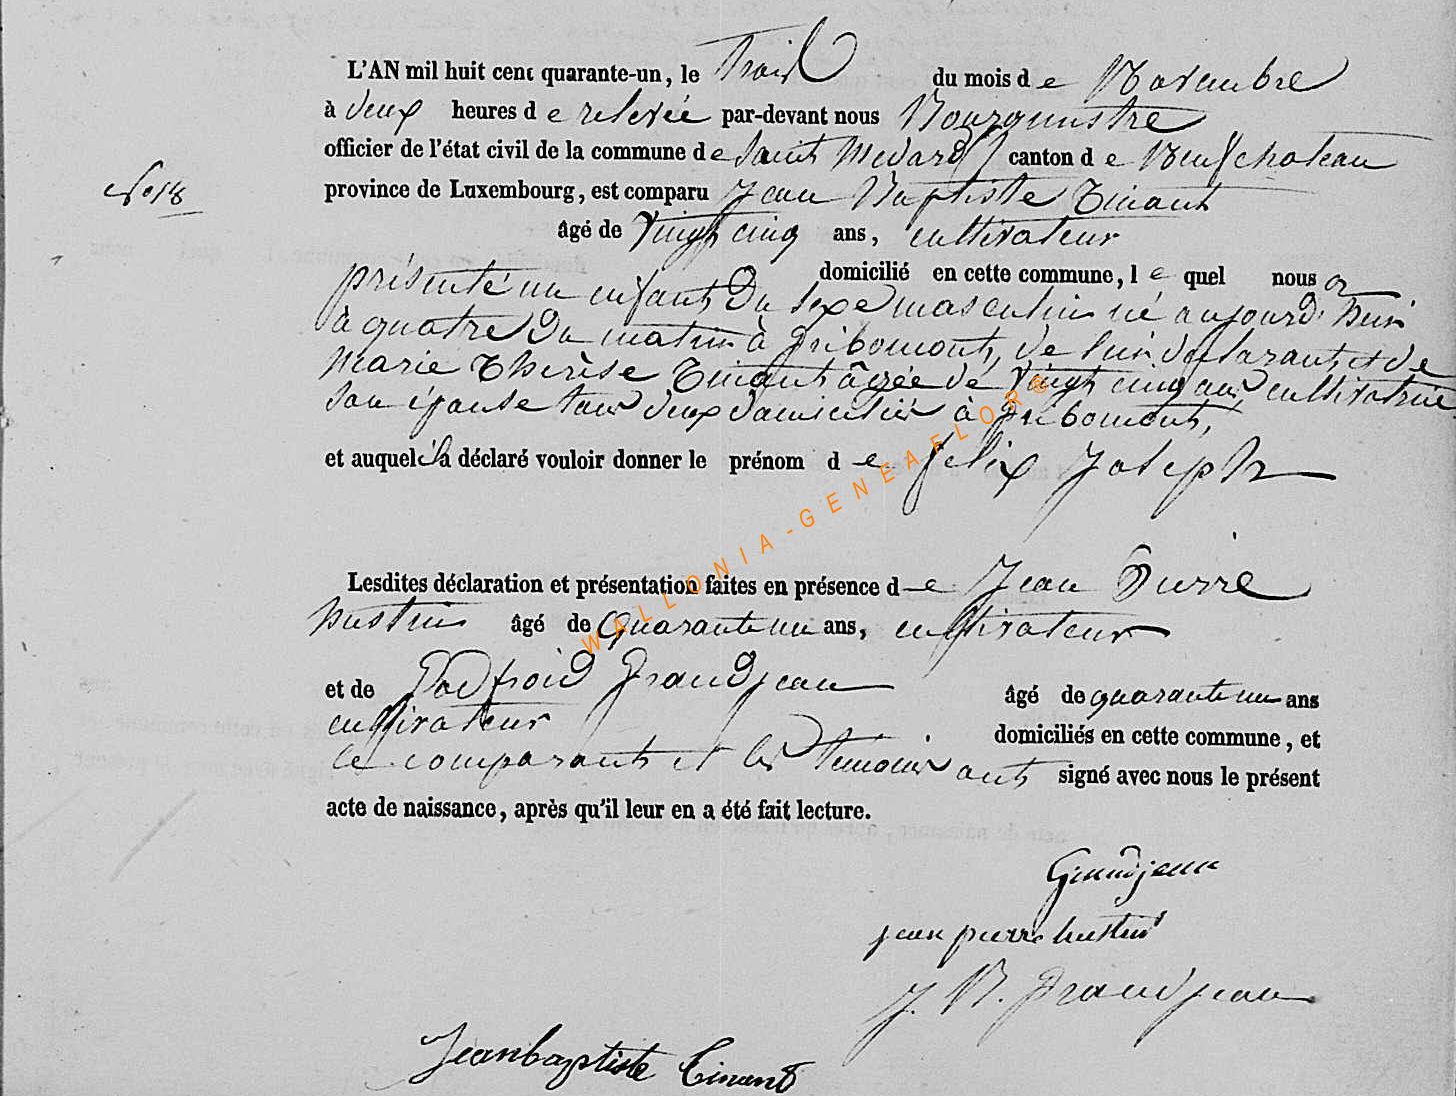 L'AN mil huit cent quarante-un, le Trois du mois de Novembre
à deux heures de relevée par-devant nous Bourgmestre
officier de l'état civil de la commune de Saint Medard canton de Neufchateau
No 18
province de Luxembourg, est comparu Jean Baptiste Tinant
âgé de Vingt cinq ans, cultivateur
domicilié en cette commune, lequel nous a
présenté un enfant du sexe masculin né aujourd'huis
à quatre du matin à Gribomont, de lui déclarant et de
Marie Thérèse Tinant âgée de Vingt cinq ans cultivatrice
son épouse tous deux domiciliés à Gribomont,
et auquel il a déclaré vouloir donner le prénom de felix Joseph
Lesdites déclaration et présentation faites en présence de Jean Pierre
hustin âgé de Quarante un ans, cultivateur
et de Godfroid Grandjean âgé de quarante un ans
cultivateur
domiciliés en cette commune, et
le comparant et les témoins ont signé avec nous le présent
acte de naissance, après qu'il leur en a été fait lecture.
Grandjean
jean pierre hustin
J. B. Grandjean
Jeanbaptiste Tinant
WALLONIA-GENEAFLOR®